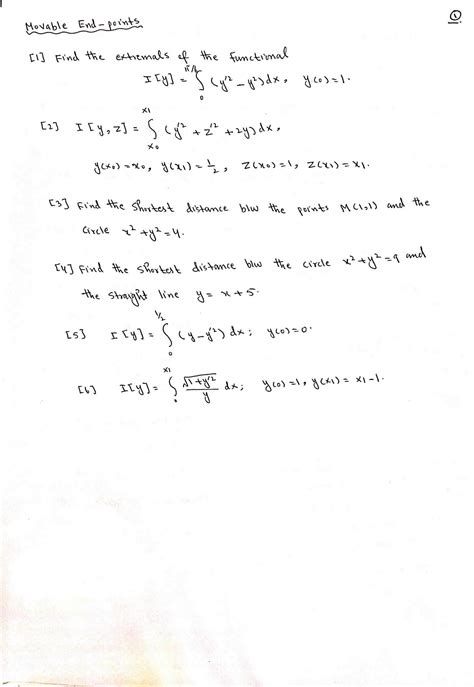 ①
Movable End-points
[1] Find the extremals of the functional
I[y] = ∫₀^{π/2} (y'² - y²) dx, y(0)=1.
[2] I[y, z] = ∫_{x0}^{x1} (y'² + z'² + 2y) dx,
y(x0) = x0, y(x1) = 1/2, z(x0) = 1, z(x1) = x1.
[3] Find the shortest distance b/w the points M(1,1) and the
circle x² + y² = 4.
[4] Find the shortest distance b/w the circle x² + y² = 9 and
the straight line y = x + 5.
[5] I[y] = ∫₀^{1/2} (y - y'²) dx; y(0) = 0.
[6] I[y] = ∫₀^{x1} √(1+y'²)/y dx; y(0) = 1, y(x1) = x1 - 1.